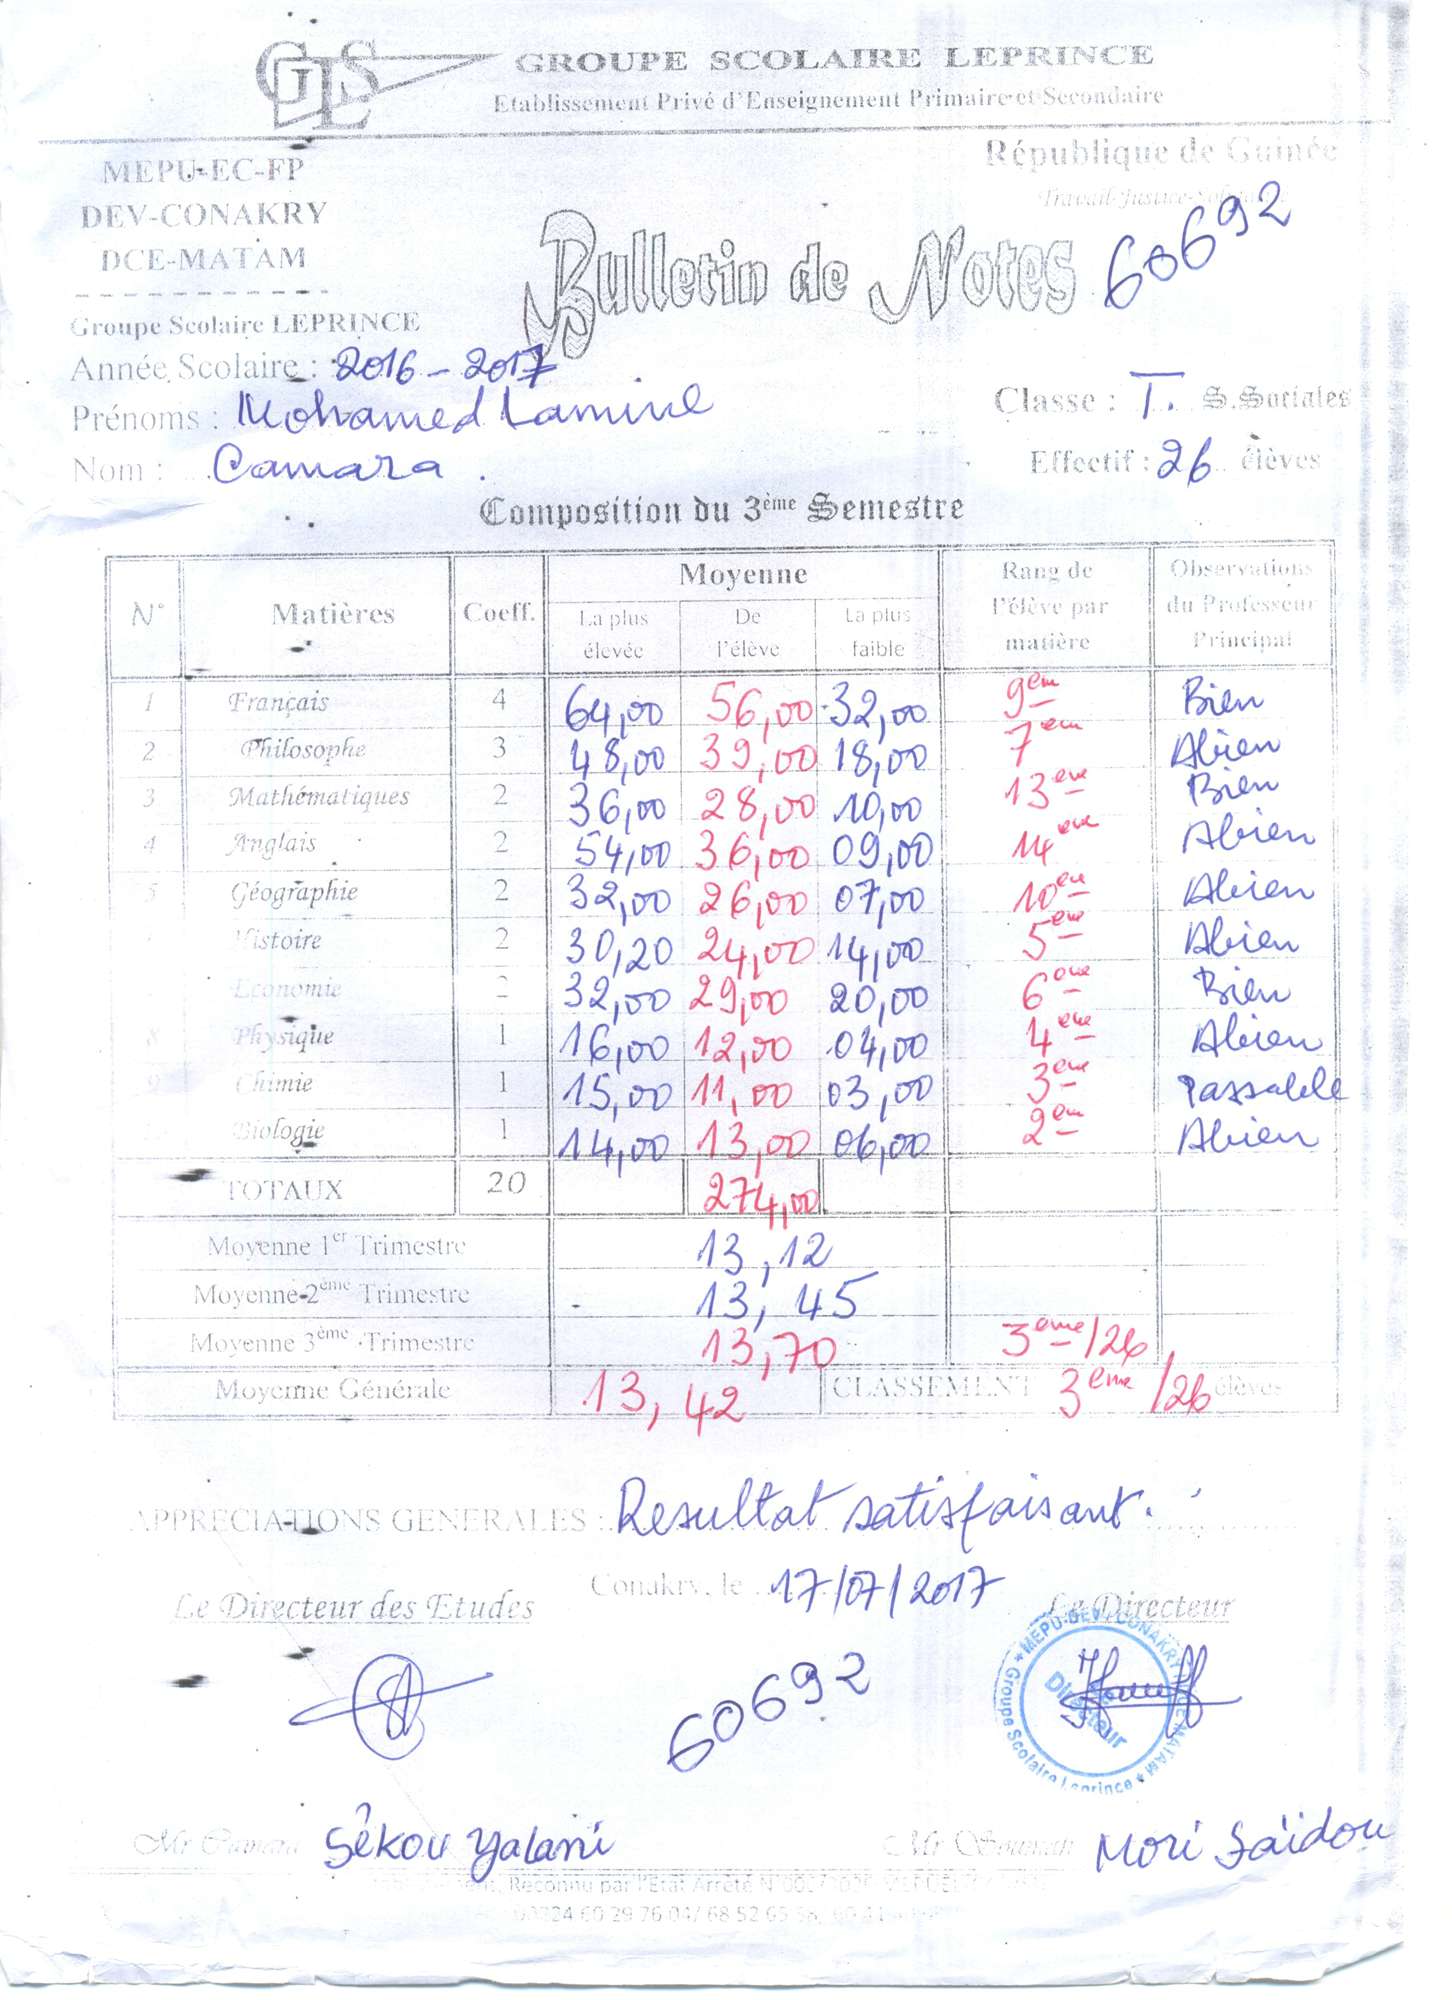 GLS
GROUPE SCOLAIRE LEPRINCE
Etablissement Privé d'Enseignement Primaire et Secondaire
MEPU-EC-FP
République de Guinée
DEV-CONAKRY
Travail-Justice-Solidarité
DCE-MATAM
Bulletin de Notes 60692
Groupe Scolaire LEPRINCE
Année Scolaire : 2016-2017
Prénoms : Mohamed Lamine
Classe : T. S.Sociales
Nom : Camara
Effectif : 26 élèves
Composition du 3ème Semestre
N° Matières Coeff. Moyenne Rang de l'élève par matière Observations du Professeur Principal
La plus élevée De l'élève La plus faible
1 Français 4 64,00 56,00 32,00 9em Bien
2 Philosophe 3 48,00 39,00 18,00 7em Abien
3 Mathématiques 2 36,00 28,00 10,00 13eme Bien
4 Anglais 2 54,00 36,00 09,00 14eme Abien
5 Géographie 2 32,00 26,00 07,00 10eme Abien
Histoire 2 30,20 24,00 14,00 5eme Abien
Economie 32,00 29,00 20,00 6eme Bien
8 Physique 1 16,00 12,00 04,00 4eme Abien
9 Chimie 1 15,00 11,00 03,00 3eme Passable
Biologie 1 14,00 13,00 06,00 2em Abien
TOTAUX 20 274,00
Moyenne 1er Trimestre 13,12
Moyenne 2ème Trimestre 13,45
Moyenne 3ème Trimestre 13,70 3eme/26
Moyenne Générale 13,42 CLASSEMENT 3eme/26 élèves
APPRECIATIONS GENERALES : Resultat satisfaisant.
Conakry, le 17/07/2017
Le Directeur des Etudes
Le Directeur
MEPU-DEV-CONAKRY DCE MATAM
Groupe Scolaire Leprince
Directeur
60692
Mr Camara Sékou Yalani
Mr Soumah Mori Saïdou
Reconnu par l'Etat Arrêté N°
00224 60 29 76 04/ 68 52 65